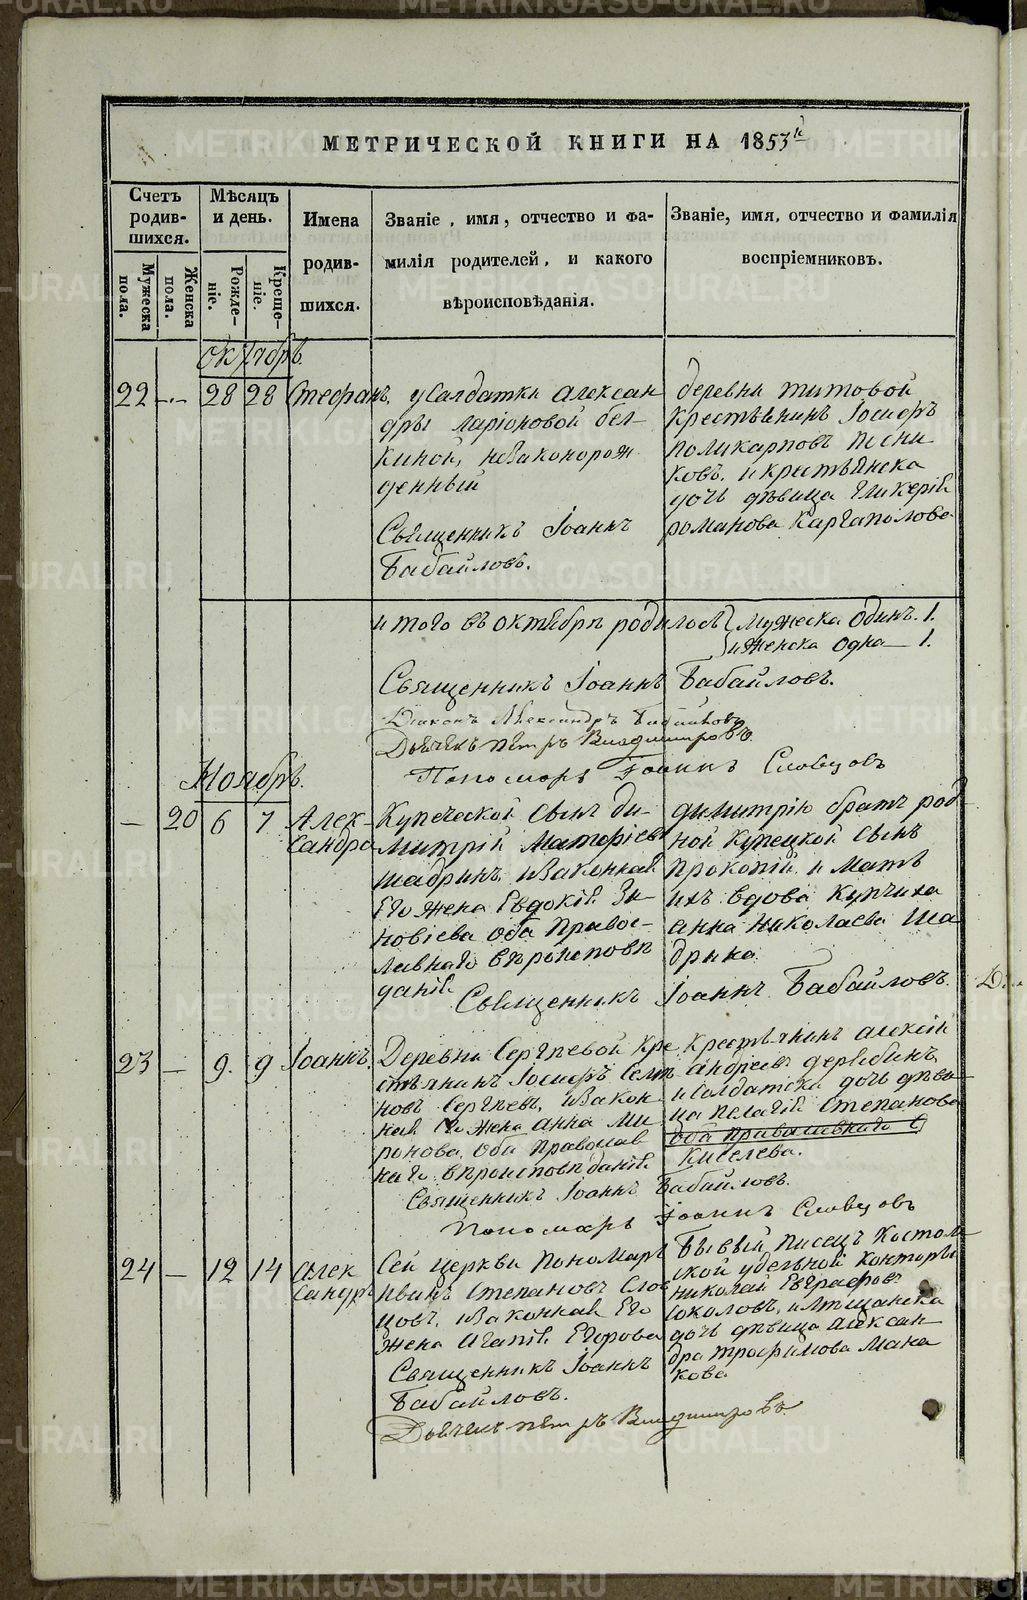 МЕТРИЧЕСКОЙ КНИГИ НА 1853й
Счетъ родив-шихся.
Мужеска пола.
Женска пола.
Мѣсяцъ и день.
Рожде-ніе.
Креще-ніе.
Имена
родив-
шихся.
Званіе, имя, отчество и фа-
милія родителей, и какого
вѣроисповѣданія.
Званіе, имя, отчество и фамилія
воспріемниковъ.
Октябрь.
22 -.- 28 28 Стефанъ.
у Салдатки Алексан
дры Ларіоновой Бел-
киной, незаконорож
денный
Священникъ Іоаннъ
Бабайловъ.
деревни Титовой
Крестьянинъ Іосифъ
поликарповъ Песни
ковъ. и крестьянска
дочь дѣвица Гликерія
романова Каргаполова
итого въ октябрѣ родилось Мужеска Одинъ. 1.
и Женска Одна — 1.
Священникъ Іоаннъ Бабайловъ.
Діаконъ Александръ
Дьячекъ Петръ Владимировъ.
Пономарь Іоаннъ Словцовъ
Ноябрь.
— 20 6 7 Алек-
сандра
Купеческой Сынъ Ди-
митрій Матфіевъ
Шадринъ, и законная
Его жена Евдокія Зи-
новіева оба Правос-
лавнаго вѣроисповѣ
данія
димитрію братъ род
ной Купецкой Сынъ
Прокопій и мать
ихъ вдова Купчиха
Анна Николаева Ша
дрина
Священникъ Іоаннъ Бабайловъ.
23 — 9. 9 Іоаннъ.
Деревни Сергѣевой Кре
стьянинъ Іосифъ Селта
новъ Сергѣевъ, и закон
ная Его жена Анна Ми
ронова, оба Православ
наго вѣроисповѣданія
Крестьянинъ Алексій
Андреевъ дерябинъ
и Солдатска дочь дѣви
ца Пелагія Степанова
оба православнаго
Киселева.
Священникъ Іоаннъ Бабайловъ.
Пономарь Іоаннъ Словцовъ
24 — 12 14 Алек
сандръ
Сей церкви Пономарь
Иванъ Степановъ Слов
цовъ, и законная Его
жена Агапія Егорова
Священникъ Іоаннъ
Бабайловъ.
Дьячекъ Петръ Владимировъ
Бывый писецъ
ской удельной конторы
Николай Евграфовъ
Соколовъ, и Мещанска
дочь дѣвица Алексан
дра трофимова Мака
кова